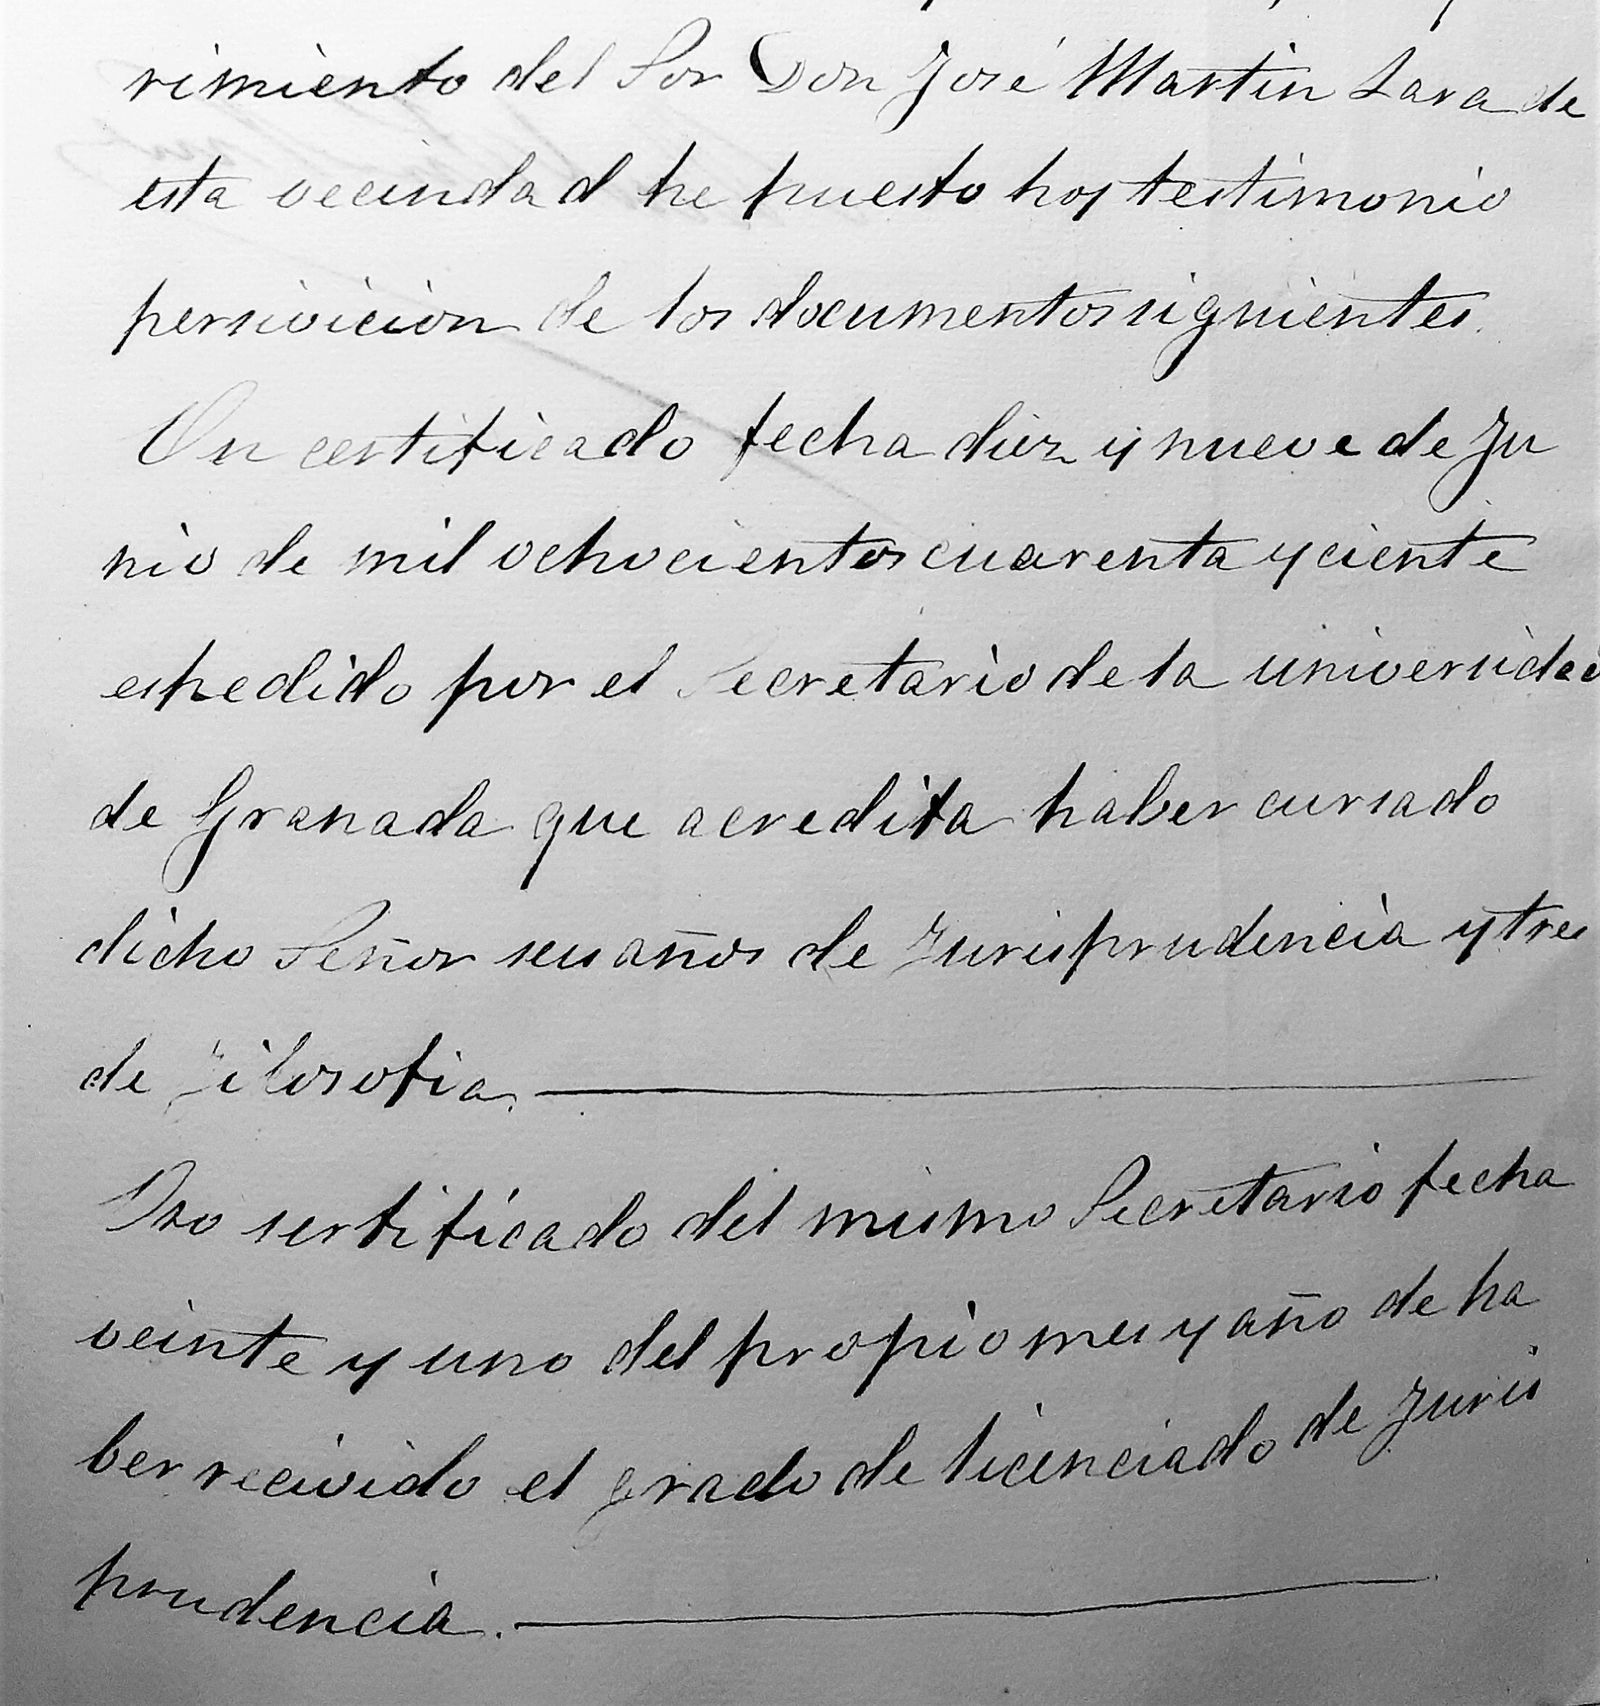 rimiento del Sor Don José Martin Lara de
esta vecindad he puesto hoy testimonio
persivicion de los documentos siguientes.
Un certificado fecha diez y nueve de Ju
nio de mil ochocientos cuarenta y ciente
espedido por el Secretario de la universidad
de Granada que acredita haber cursado
dicho Señor seis años de Jurisprudencia y tres
de Filosofia.
Oro sertificado del mismo Secretario fecha
veinte y uno del propio mes y año de ha
ber recivido el grado de licenciado de Juris
prudencia.